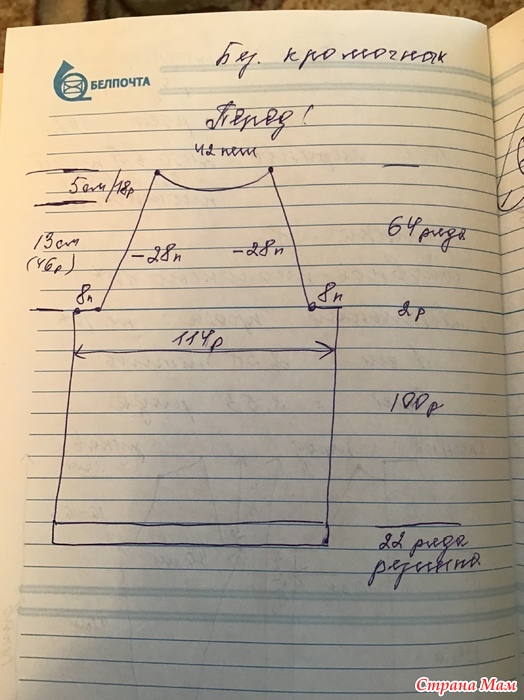 Без. кромочных
БЕЛПОЧТА
Перед!
42 пет
5см/18р
64 ряда
13 см
(46р)
-28п -28п
8п 8п
2р
114р
100р
22 ряда
резинка
Страна Мам